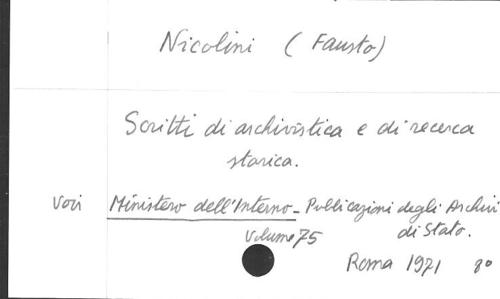 Nicolini (Fausto)
Scritti di archivistica e di recerca
storica.
Voir Ministero dell'Interno - Pubblicazioni degli Archivi
di Stato.
Volume 75
Roma 1971 8º